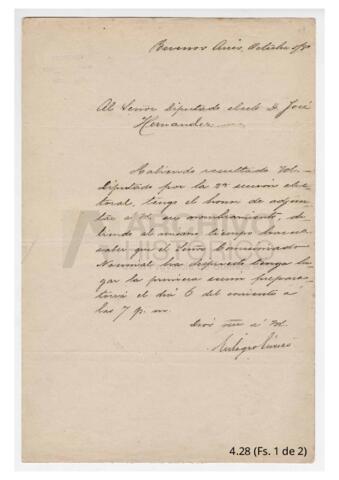 Buenos Aires, Octubre
Al Señor Diputado electo D. José
Hernandez
Habiendo resultado Vd.
Diputado por la 2ª sección elec-
toral, tengo el honor de adjun-
a Vd. su nombramiento, de-
al mismo tiempo
saber que el Señor Comisionado
Nacional ha dispuesto tenga lu-
gar la primera prepara-
toria el día 6 del corriente á
las 7 p. m.
Dios gue á Vd.
ARCHIVO
HISTÓRICO
4.28 (Fs. 1 de 2)